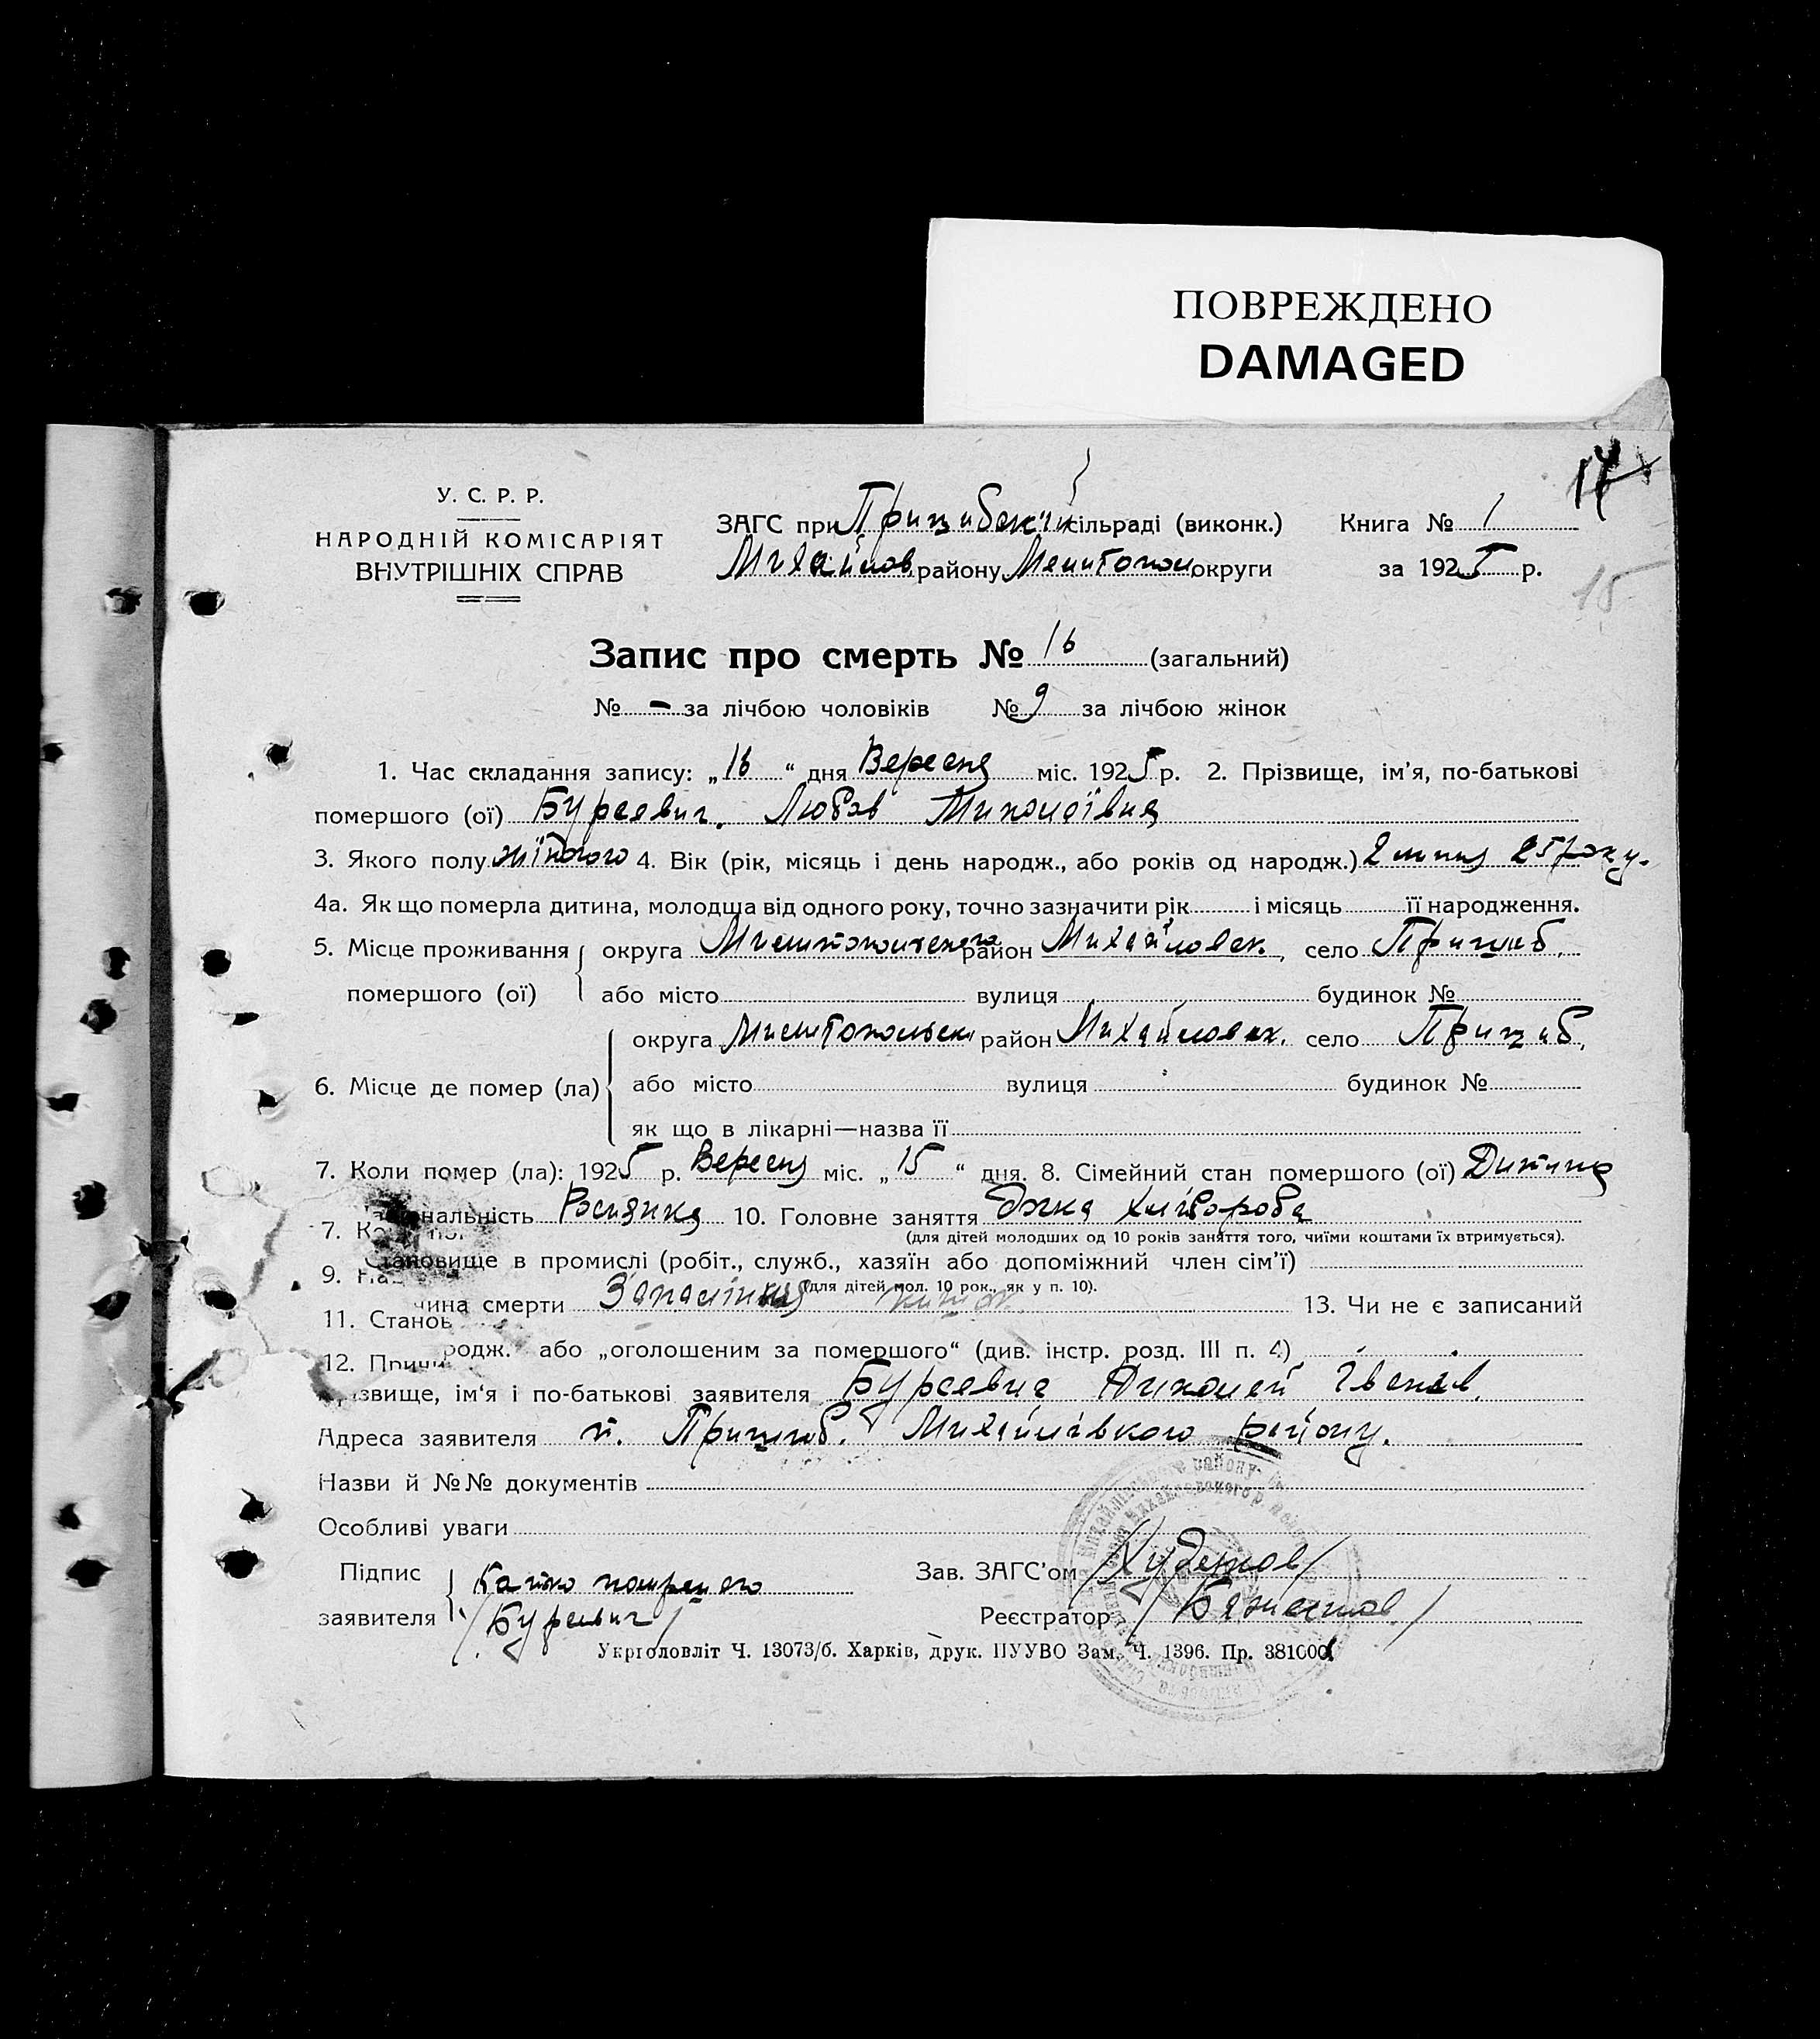 ПОВРЕЖДЕНО
DAMAGED
14
У. С. Р. Р.
НАРОДНІЙ КОМІСАРІЯТ
ВНУТРІШНІХ СПРАВ
ЗАГС при Пришибській сільраді (виконк.) Книга № 1
Михайлов. району Мелитопол округи за 1925 р.
15
Запис про смерть № 16 (загальний)
№ - за лічбою чоловіків № 9 за лічбою жінок
1. Час складання запису: „16“ дня Вересня міс. 1925 р. 2. Прізвище, ім’я, по-батькові
помершого (ої) Бурсевич. Любов Миколаївна
3. Якого полу жіночого 4. Вік (рік, місяць і день народж., або років од народж.) 2 липня 25 року.
4а. Як що померла дитина, молодша від одного року, точно зазначити рік і місяць її народження.
5. Місце проживання округа район Михайловск. село Пришиб.
помершого (ої) або місто вулиця будинок №
округа Мелитопольск район Михайловск. село Пришиб.
6. Місце де помер (ла) або місто вулиця будинок №
як що в лікарні—назва її
7. Коли помер (ла): 1925 р. Вересня міс. „15“ дня. 8. Сімейний стан помершого (ої) Дитина
нальність 10. Головне заняття хлібороба
7. К
(для дітей молодших од 10 років заняття того, чиїми коштами їх втримується).
тановище в промислі (робіт., служб., хазяїн або допоміжний член сім’ї)
9. На
(для дітей мол. 10 рок., як у п. 10).
чина смерти Запаління 13. Чи не є записаний
11. Станов
родж.“ або „оголошеним за помершого“ (див. інстр. розд. III п. 4)
12. Причи
ізвище, ім‘я і по-батькові заявителя Бурсевич Миколай Іванов.
Адреса заявителя с. Пришиб. Михайлівкого району.
Назви й №№ документів
Особливі уваги
Підпис Зав. ЗАГС’ом
заявителя /Бурсевич/ Реєстратор
Укрголовліт Ч. 13073/б. Харків, друк. ПУУВО Зам. Ч. 1396. Пр. 381000